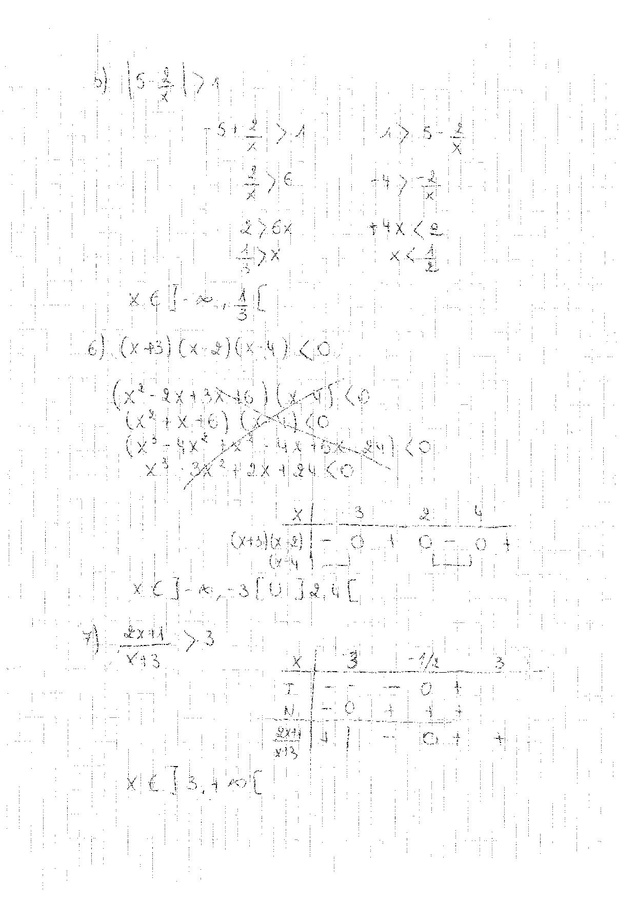 5) |5 - 2/x| > 1
-5 + 2/x > 1    1 > 5 - 2/x
2/x > 6    -4 > -2/x
2 > 6x    +4x < 2
1/3 > x    x < 1/2
x ∈ ]-∞, 1/3[
6) (x+3)(x-2)(x-4) < 0
(x² - 2x + 3x + 6)(x-4) < 0
(x² + x + 6)(x-4) < 0
(x³ - 4x² + x² - 4x + 6x - 24) < 0
x³ - 3x² + 2x + 24 < 0
x | 3 2 4
(x+3)(x-2) | - 0 + 0 - 0 +
(x-4
x ∈ ]-∞, -3[ ∪ ]2,4[
7) 2x+1/x+3 > 3
x | 3 -1/2 3
T | - - - 0 +
N | - 0 + + +
2x+1/x+3 | + | - 0 + +
x ∈ ]3, +∞[